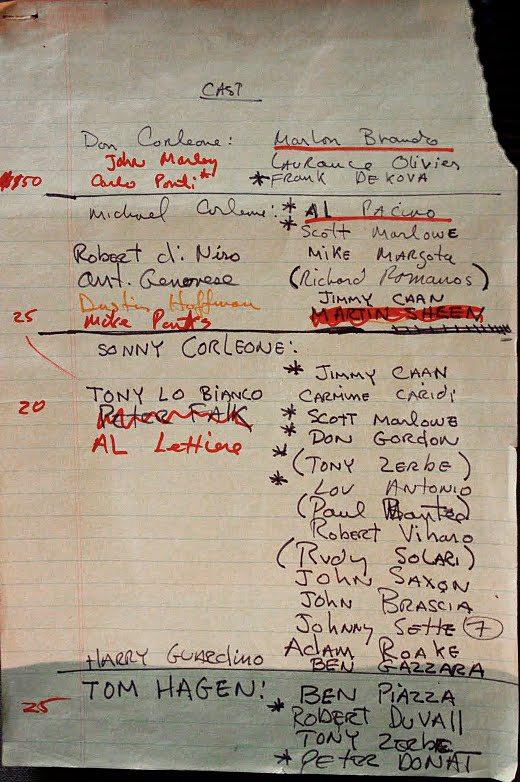 CAST
Don Corleone: Marlon Brando
John Marley Laurance Olivier
Carlo Ponti * * FRANK DEKOVA
Michael Corleone: * AL PACINO
* Scott Marlowe
Robert di Niro MIKE MARGOTA
Ant. Genovese (Richard Romanos)
Dustin Hoffman JIMMY CAAN
25 Mike Parks MARTIN SHEEN
SONNY CORLEONE:
* JIMMY CAAN
TONY LO BIANCO CARMINE CARIDI
20 Peter FALK * SCOTT MARLOWE
AL Lettiere * DON GORDON
* (TONY ZERBE)
* LOU ANTONIO
(Paul )
Robert Viharo
(RUDY SOLARI)
JOHN SAXON
JOHN BRASCIA
JOHNNY SETTE 7
ADAM ROAKE
HARRY GUARDINO BEN GAZZARA
TOM HAGEN: BEN PIAZZA
25 * ROBERT DUVALL
TONY ZERBE
* PETER DONAT